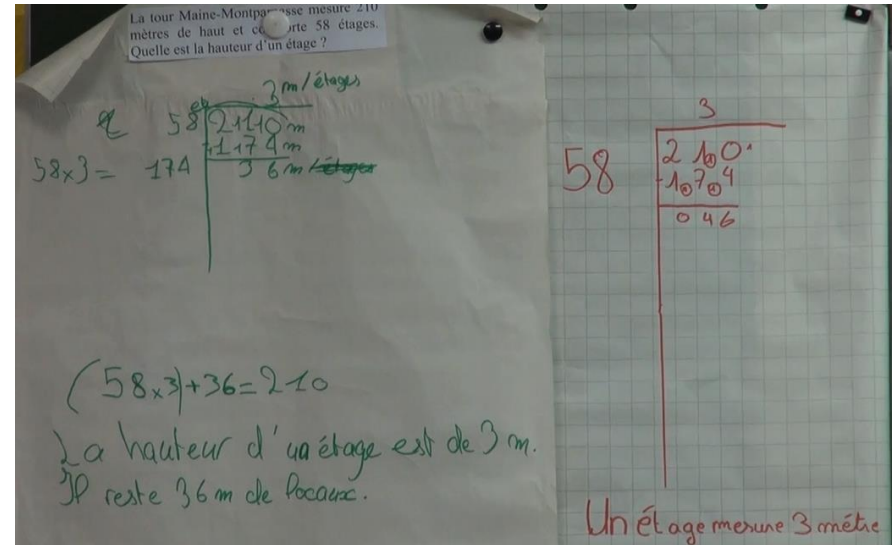 La tour Maine-Montparnasse mesure 210
mètres de haut et comporte 58 étages.
Quelle est la hauteur d'un étage ?
3 m/étages
58 210 m
58x3= 174 174 m
36 m
(58x3)+36=210
La hauteur d'un étage est de 3 m.
Il reste 36 m de locaux.
3
58 210
-174
046
Un étage mesure 3 métre